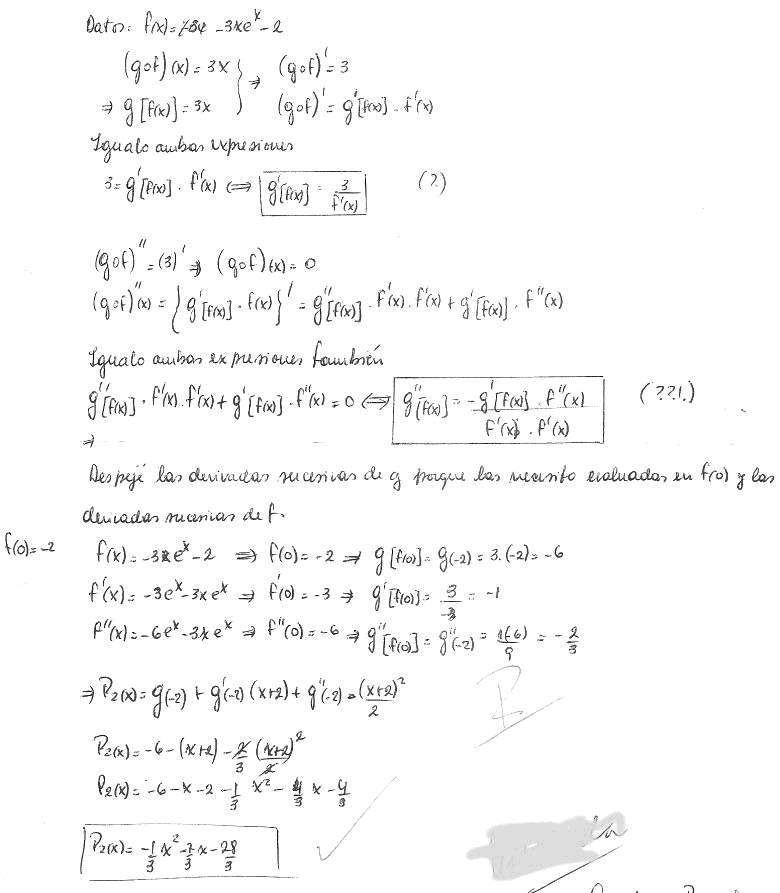 Datos: f(x) = -3xeˣ - 2
(gof)(x) = 3x } ⇒ (gof)' = 3
⇒ g[f(x)] = 3x (gof)' = g'[f(x)] . f'(x)
Igualo ambas expresiones
3 = g'[f(x)] . f'(x) ⇔ g'[f(x)] = 3/f'(x) (?.)
(gof)'' = (3)' ⇒ (gof)''(x) = 0
(gof)''(x) = {g'[f(x)] . f(x)}' = g''[f(x)] . f'(x) . f'(x) + g'[f(x)] . f''(x)
Igualo ambas expresiones también
g''[f(x)] . f'(x) . f'(x) + g'[f(x)] . f''(x) = 0 ⇔ g''[f(x)] = -g'[f(x)] . f''(x) / f'(x) . f'(x) (??.)
⇒
Despejé las derivadas sucesivas de g porque las necesito evaluadas en f(0) y las
derivadas sucesivas de f.
f(0) = -2 f(x) = -3xeˣ - 2 ⇒ f(0) = -2 ⇒ g[f(0)] = g(-2) = 3.(-2) = -6
f'(x) = -3eˣ - 3xeˣ ⇒ f'(0) = -3 ⇒ g'[f(0)] = 3/-3 = -1
f''(x) = -6eˣ - 3xeˣ ⇒ f''(0) = -6 ⇒ g''[f(0)] = g''(-2) = 1(-6)/9 = -2/3
⇒ P₂(x) = g(-2) + g'(-2) (x+2) + g''(-2) . (x+2)²/2
P₂(x) = -6 - (x+2) - 2/3 (x+2)²/2
P₂(x) = -6 - x - 2 - 1/3 x² - 4/3 x - 4/3
P₂(x) = -1/3 x² - 7/3 x - 28/3